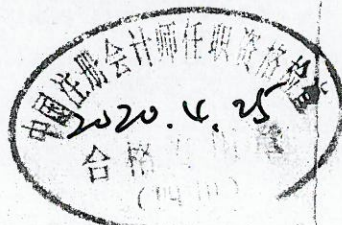 中国注册会计师任职资格检查
2020.4.25
合格
(四川)